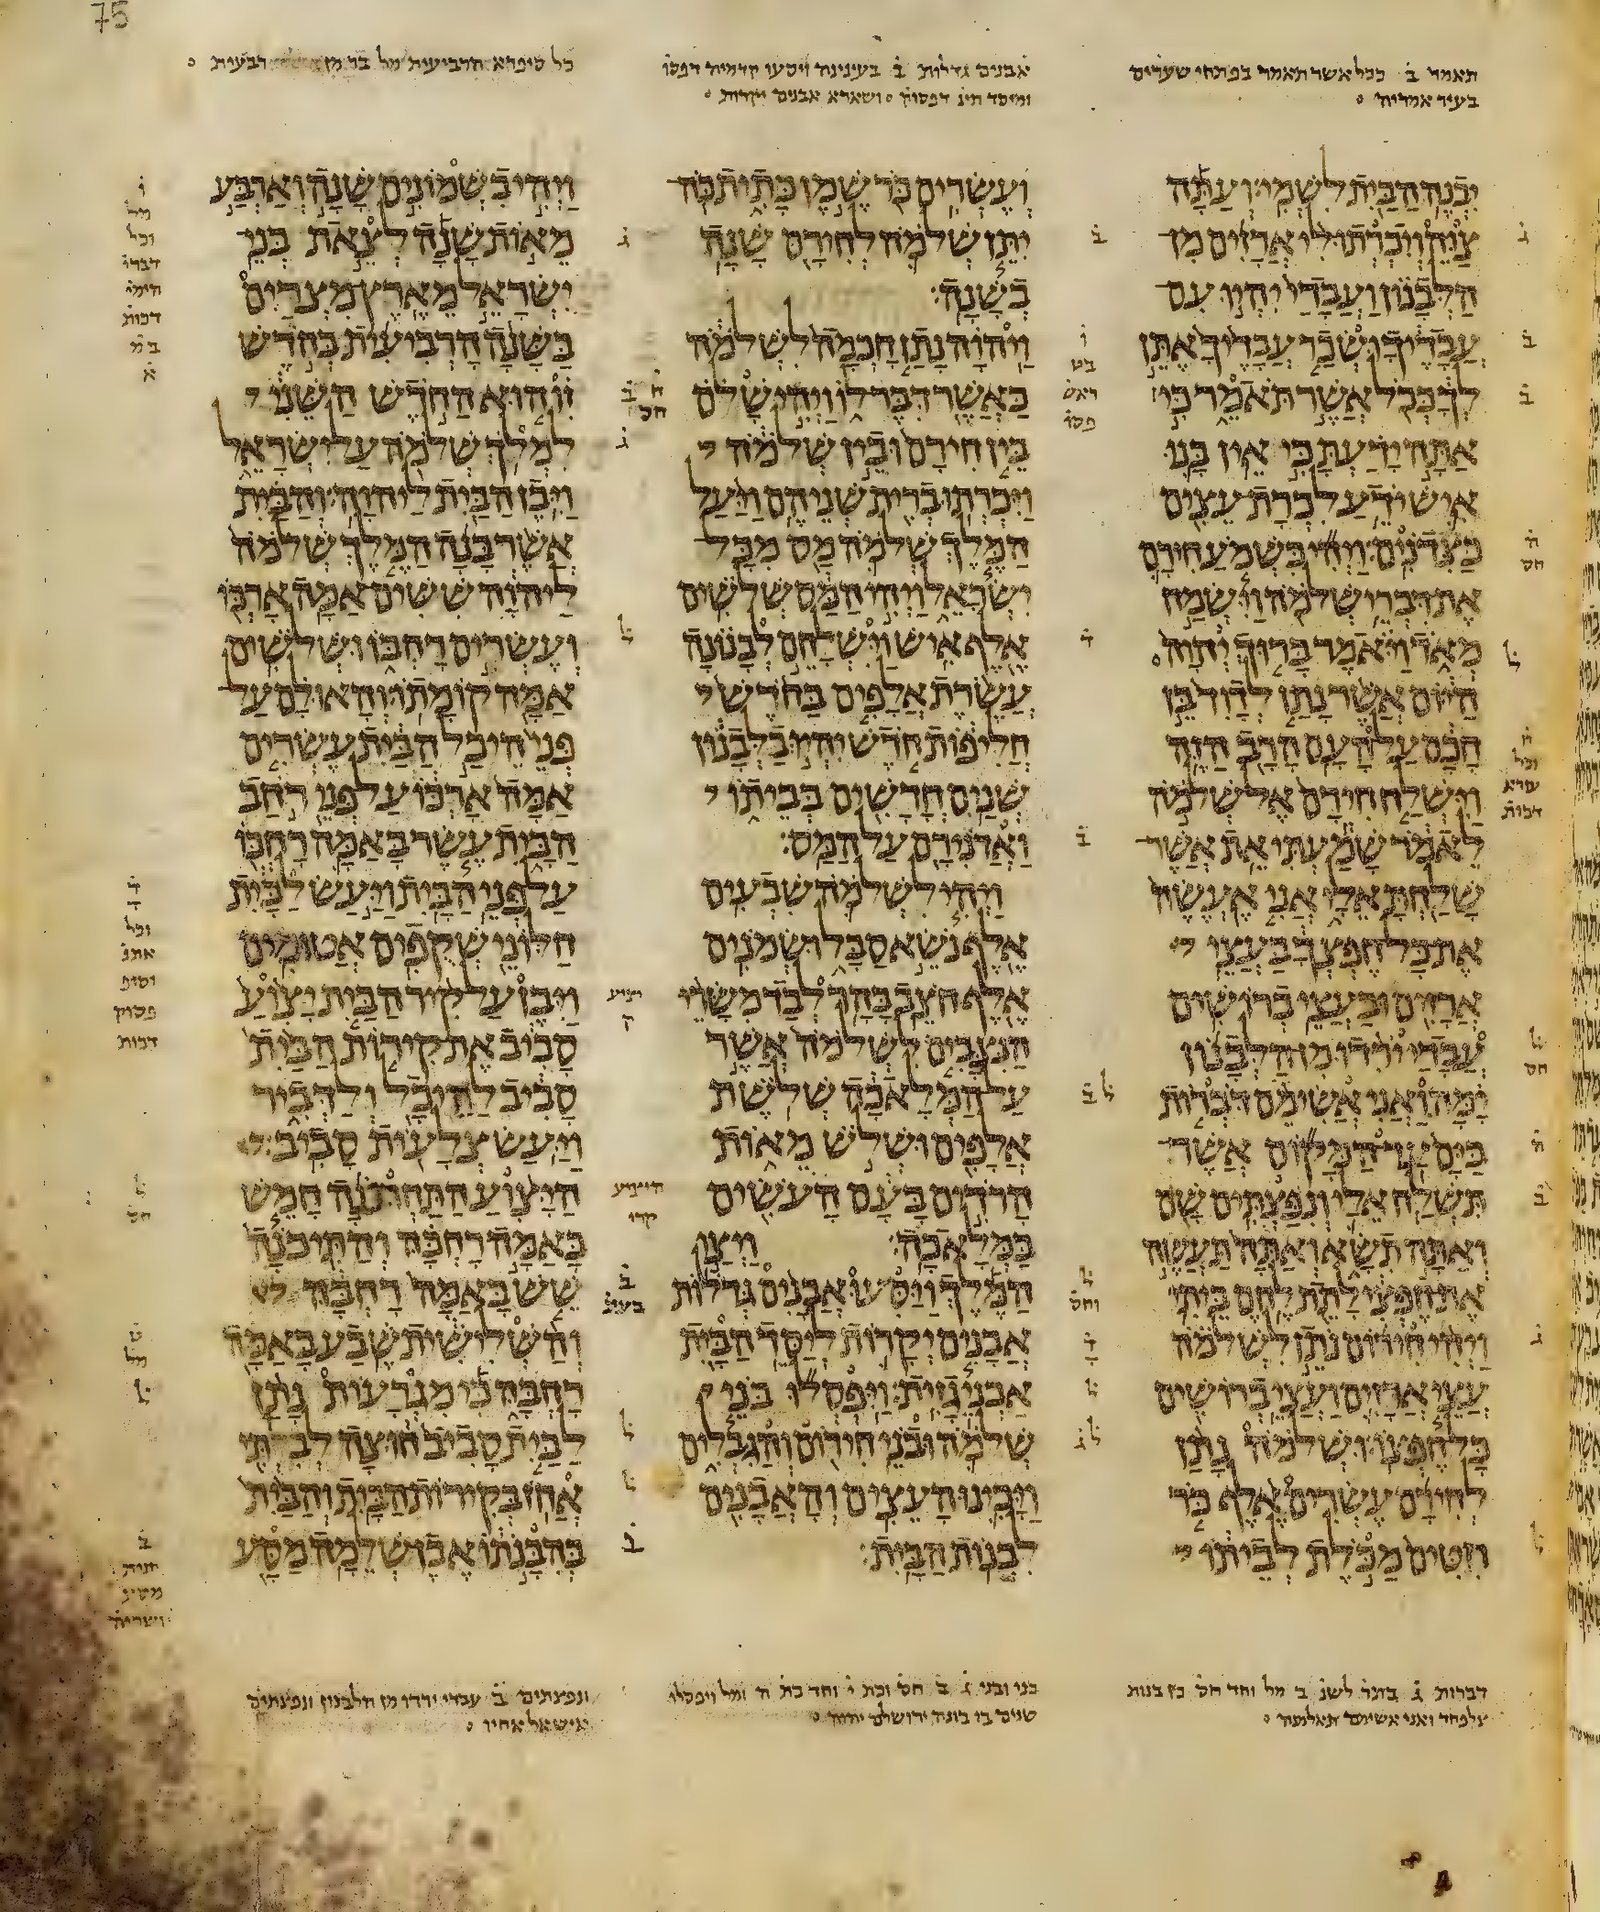 תאמר ב ככל אשר תאמר בפתחי שערים
בעיר אמריה
אבנים גדלות ב בעינינה ויסעו קדמיה דפסו
ומיסד תינ דפסוק ושארא אבנים יקרות
כל סיפרא הרביעית מל בר מן רבעות
יבנה הבית לשמי ועתה
צוה ויכרתו לי ארזים מן
הלבנון ועבדי יהיו עם
עבדיך ושכר עבדיך אתן
לך ככל אשר תאמר כי
אתה ידעת כי אין בנו
איש ידע לכרת עצים
כצדנים ויהי כשמע חירם
את דברי שלמה וישמח
מאד ויאמר ברוך יהוה
היום אשר נתן לדוד בן
חכם על העם הרב הזה
וישלח חירם אל שלמה
לאמר שמעתי את אשר
שלחת אלי אני אעשה
את כל חפצך בעצי
ארזים ובעצי ברושים
עבדי ירדו מן הלבנון
ימה ואני אשימם דברות
בים עד המקום אשר
תשלח אלי ונפצתים שם
ואתה תשא ואתה תעשה
את חפצי לתת לחם ביתי
ויהי חירום נתן לשלמה
עצי ארזים ועצי ברושים
כל חפצו ושלמה נתן
לחירם עשרים אלף כר
חטים מכלת לביתו
ועשרים כר שמן כתית כה
יתן שלמה לחירם שנה
בשנה
ויהוה נתן חכמה לשלמה
כאשר דבר לו ויהי שלם
בין חירם ובין שלמה
ויכרתו ברית שניהם ויעל
המלך שלמה מס מכל
ישראל ויהי המס שלשים
אלף איש וישלחם לבנונה
עשרת אלפים בחדש
חליפות חדש יהיו בלבנון
שנים חדשים בביתו
ואדנירם על המס
ויהי לשלמה שבעים
אלף נשא סבל ושמנים
אלף חצב בהר לבד משרי
הנצבים לשלמה אשר
על המלאכה שלשת
אלפים ושלש מאות
הרדים בעם העשים
במלאכה ויצו
המלך ויסעו אבנים גדלות
אבנים יקרות ליסד הבית
אבני גזית ויפסלו בני
שלמה ובני חירום והגבלים
ויכינו העצים והאבנים
לבנות הבית
ויהי בשמונים שנה וארבע
מאות שנה לצאת בני
ישראל מארץ מצרים
בשנה הרביעית בחדש
זו הוא החדש השני
למלך שלמה על ישראל
ויבן הבית ליהוה והבית
אשר בנה המלך שלמה
ליהוה ששים אמה ארכו
ועשרים רחבו ושלשים
אמה קומתו והאולם על
פני היכל הבית עשרים
אמה ארכו על פני רחב
הבית עשר באמה רחבו
על פני הבית ויעש לבית
חלוני שקפים אטומים
ויבן על קיר הבית יצוע
סביב את קירות הבית
סביב להיכל ולדביר
ויעש צלעות סביב
היצוע התחתנה חמש
באמה רחבה והתיכנה
שש באמה רחבה
והשלישית שבע באמה
רחבה כי מגרעות נתן
לבית סביב חוצה לבלתי
אחז בקירות הבית והבית
בהבנתו אבן שלמה מסע
דברות ג בתר לשנ ב מל וחד חס כן בנות
צלפחד ואני אשימם תאלמנה
בני ובני ג ב חס וכת י וחד כת ה ומל ויפסלו
טנים בו בונה ירושלם יהוה
ונפצתים ב עבדי ירדו מן הלבנון ונפצתים
איש אל אחיו